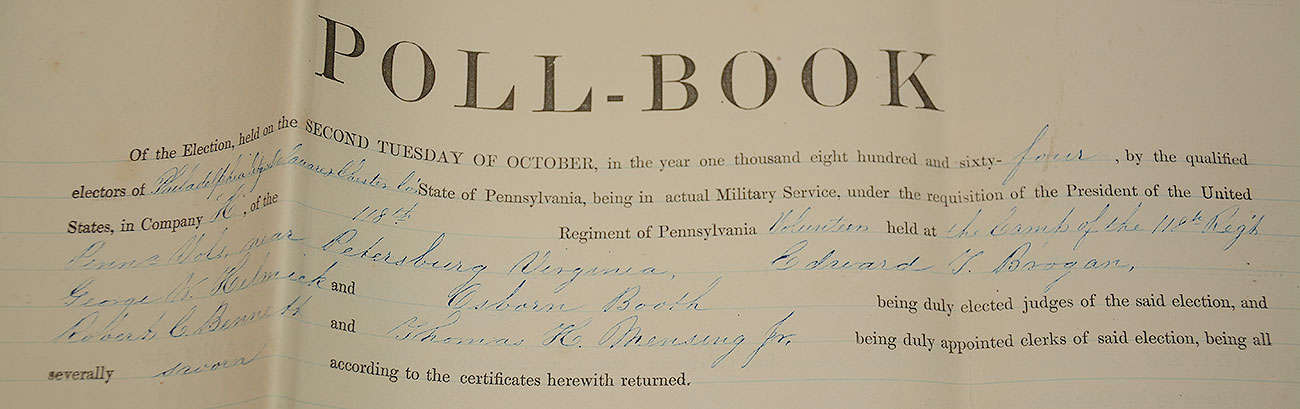 POLL-BOOK
Of the Election, held on the SECOND TUESDAY OF OCTOBER, in the year one thousand eight hundred and sixty-four, by the qualified
electors of Philadelphia Delaware Chester Co State of Pennsylvania, being in actual Military Service, under the requisition of the President of the United
States, in Company K, of the 118th Regiment of Pennsylvania Volunteers held at the Camp of the 118th Reg't
Penna Vols, near Petersburg Virginia, Edward T. Brogan,
George W. Helmick and Osborn Booth being duly elected judges of the said election, and
Robert C Bennett and Thomas H. Mensing Jr. being duly appointed clerks of said election, being all
severally sworn according to the certificates herewith returned.